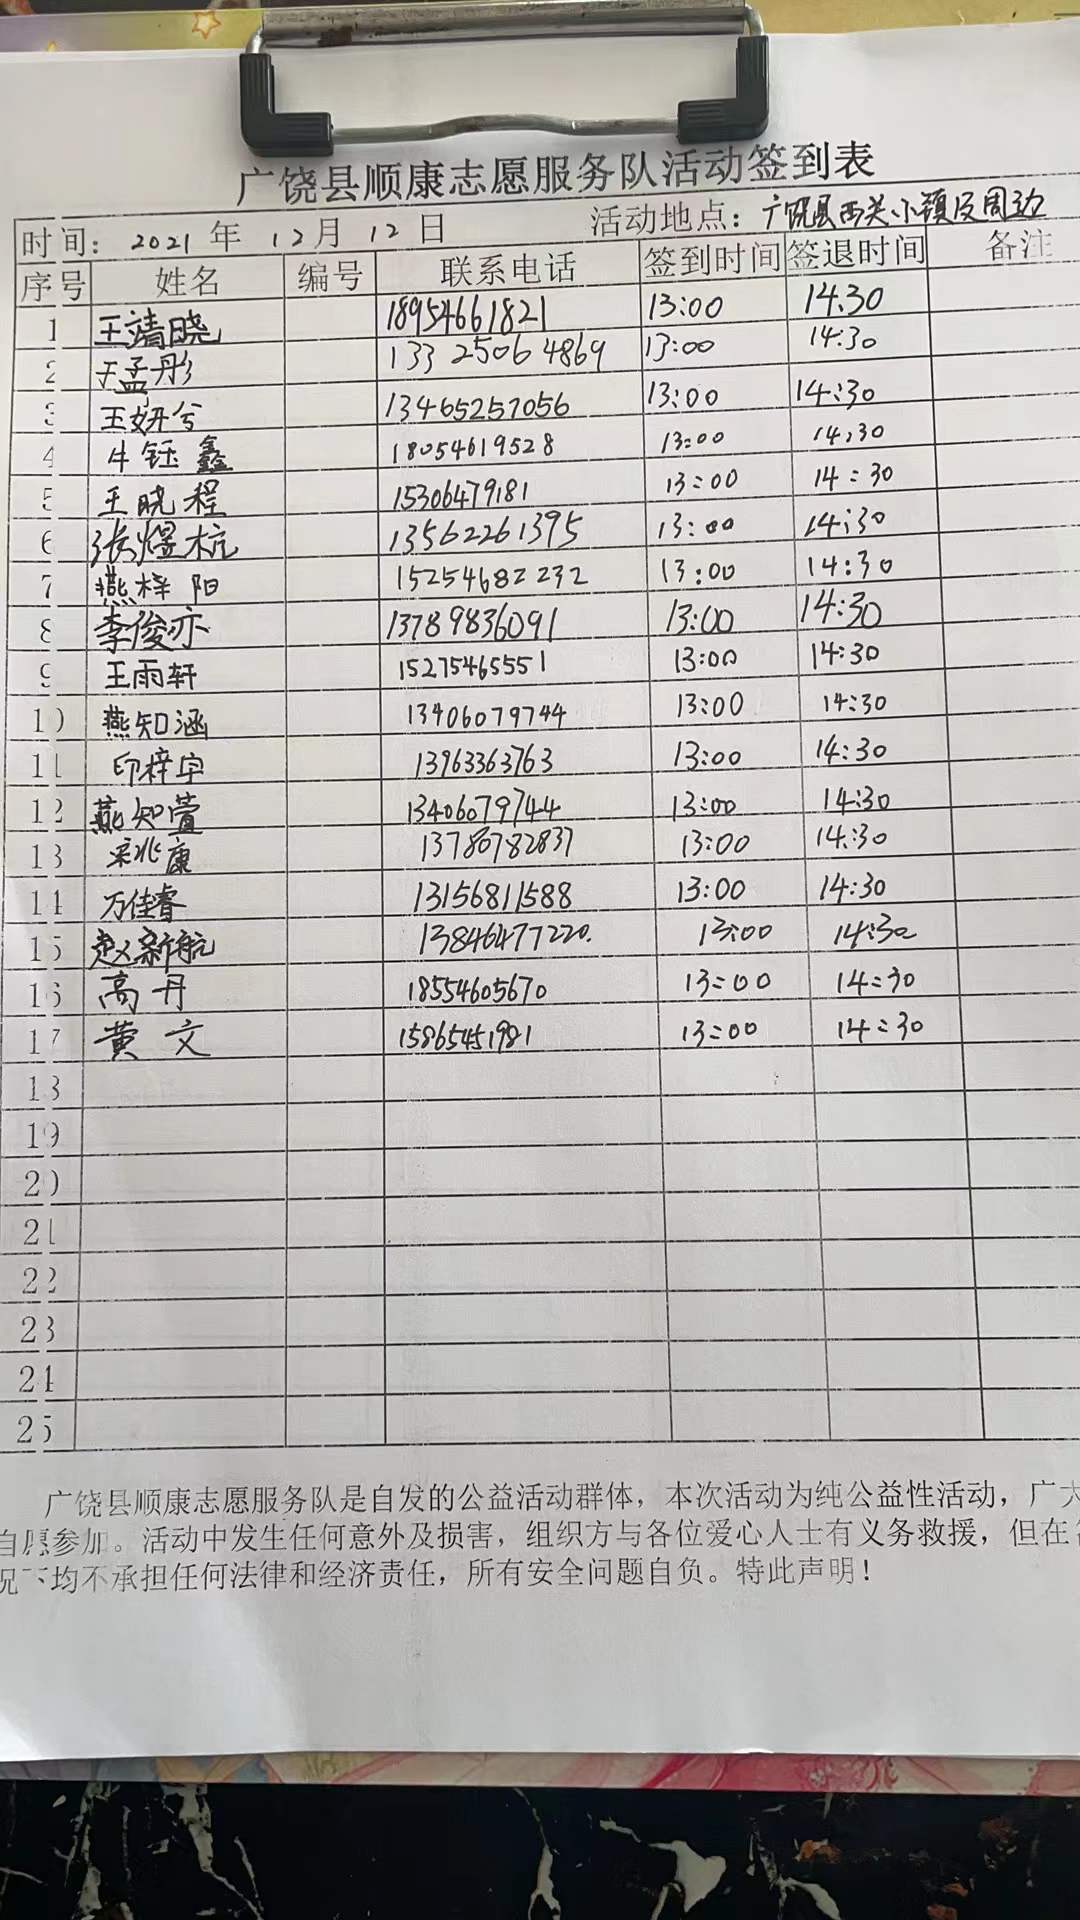 广饶县顺康志愿服务队活动签到表
时间: 2021 年 12月 12 日 活动地点: 广饶县西关小镇及周边
序号 姓名 编号 联系电话 签到时间 签退时间 备注
1 王靖晓 18954661821 13:00 14:30
2 王孟彤 133 2506 4869 13:00 14:30
3 王妍兮 13465257056 13:00 14:30
4 牛钰鑫 18054619528 13:00 14:30
5 王晓程 15306479181 13:00 14:30
6 张煜杭 13562261395 13:00 14:30
7 燕梓阳 15254682232 13:00 14:30
8 李俊亦 13789836091 13:00 14:30
9 王雨轩 15275465551 13:00 14:30
10 燕知涵 13406079744 13:00 14:30
11 印梓宇 13963363763 13:00 14:30
12 燕知萱 13406079744 13:00 14:30
13 兆康 13780782837 13:00 14:30
14 万佳睿 13156811588 13:00 14:30
15 赵新航 13846477220. 13:00 14:30
16 高丹 18554605670 13:00 14:30
17 黄文 15865451981 13:00 14:30
18
19
20
21
22
23
24
25
广饶县顺康志愿服务队是自发的公益活动群体，本次活动为纯公益性活动，广大
自愿参加。活动中发生任何意外及损害，组织方与各位爱心人士有义务救援，但在
况下均不承担任何法律和经济责任，所有安全问题自负。特此声明！